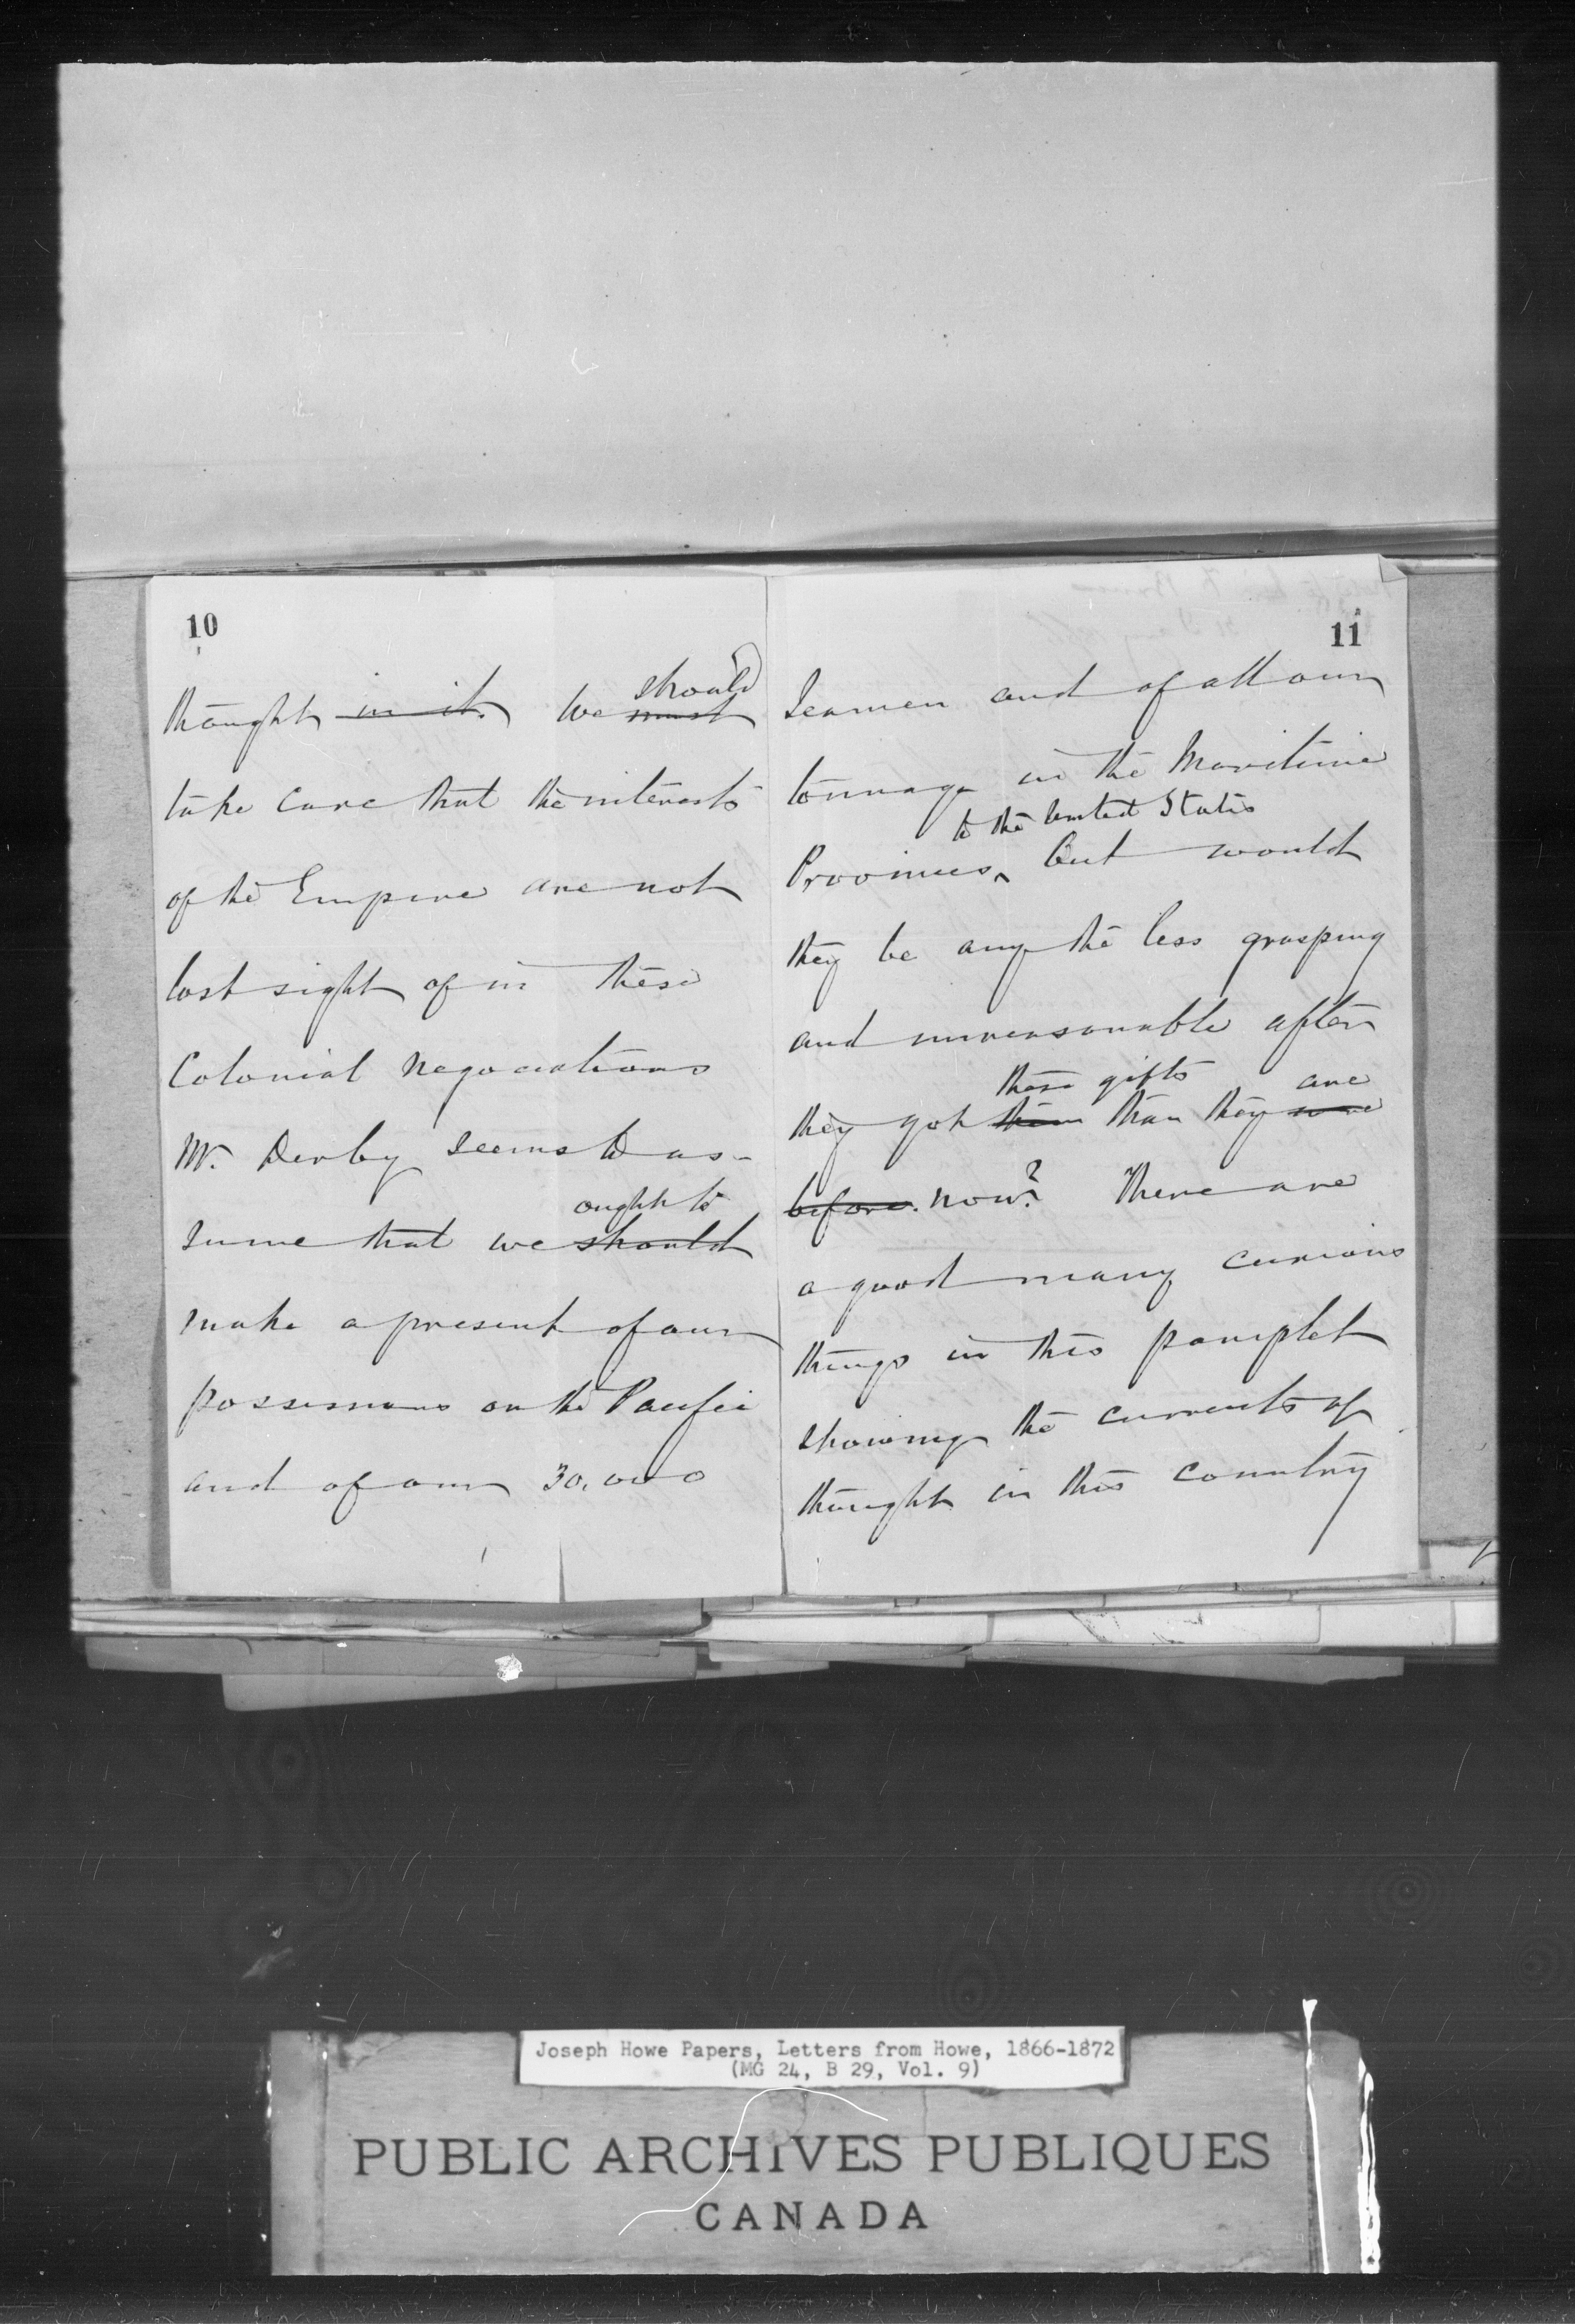 10
thought in it. We must should
take care that the interests
of the Empire are not
lost sight of in these
Colonial Negociations
Mr. Derby seems to as-
sume that we should ought to
make a present of our
possessions on the Pacific
and of our 30,000
11
Seamen and of all our
tonnage in the Maritime
to the United States
Provinces, but would
they be any the less grasping
and unreasonable after
these gifts are
they got them than they were
before. now? There are
a good many curious
things in this pamplet
showing the currents of
thought in this country
Joseph Howe Papers, Letters from Howe, 1866-1872
(MG 24, B 29, Vol. 9)
PUBLIC ARCHIVES PUBLIQUES
CANADA